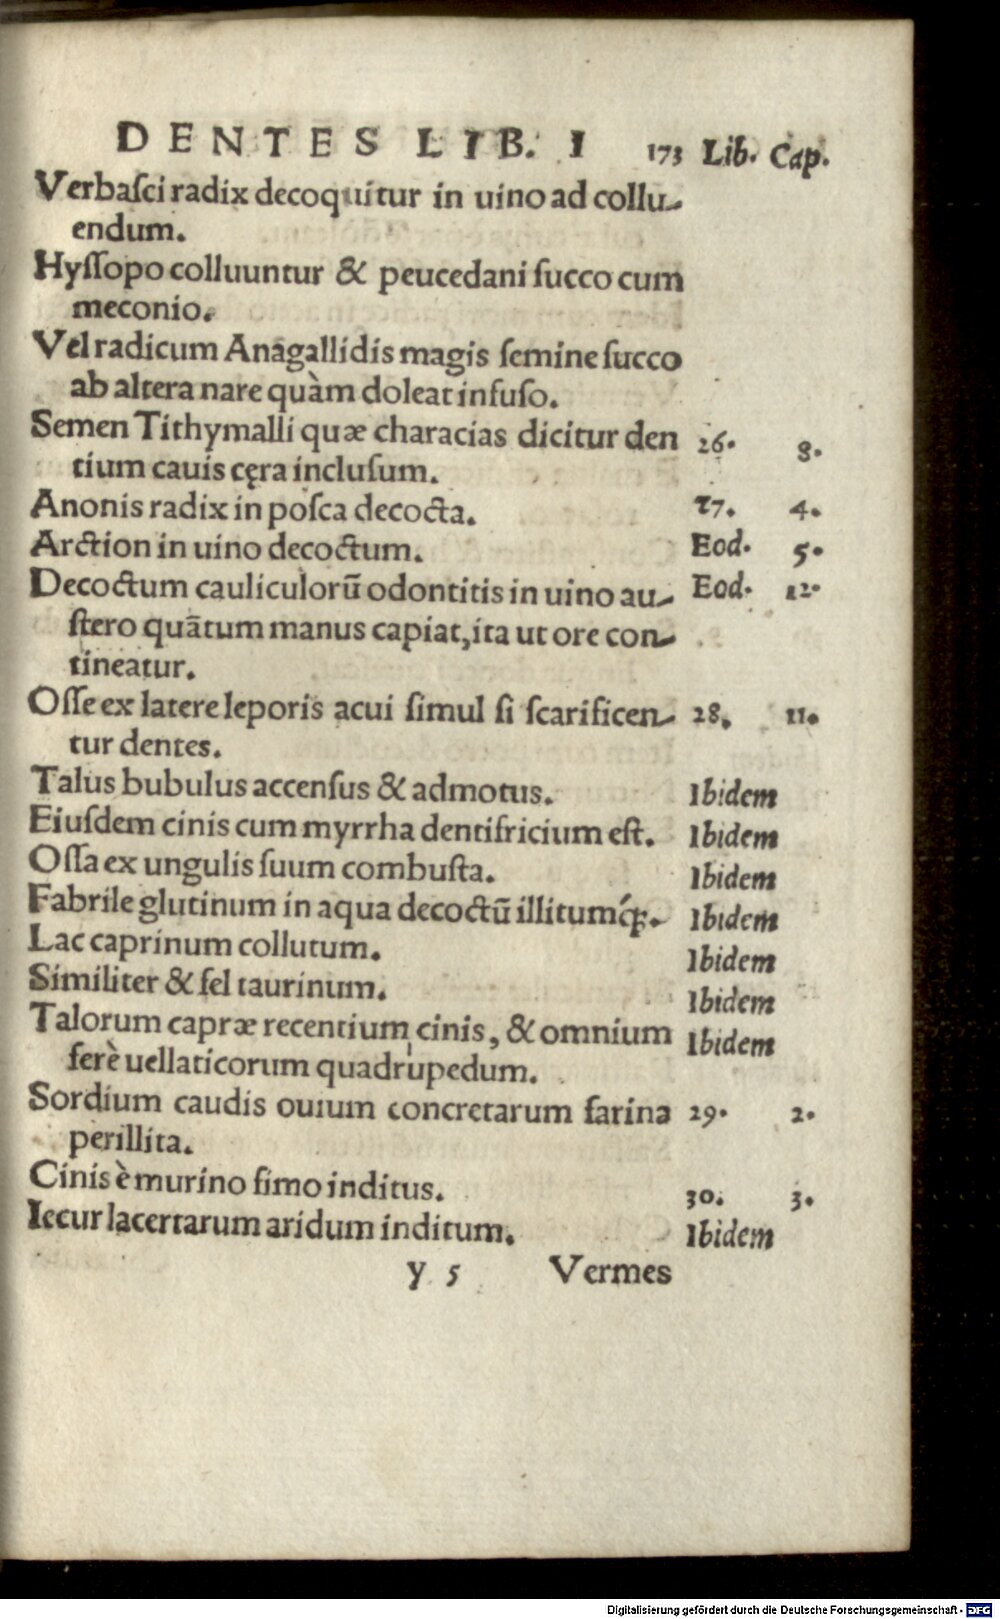 DENTES LIB. I 173 Lib. Cap.
Verbaſci radix decoquitur in uino ad collu-
endum.
Hyſſopo colluuntur & peucedani ſucco cum
meconio.
Vel radicum Anagallidis magis ſemine ſucco
ab altera nare quàm doleat infuſo.
Semen Tithymalli quæ characias dicitur den 26. 8.
tium cauis cęra incluſum.
Anonis radix in poſca decocta. 27. 4.
Arction in uino decoctum. Eod. 5.
Decoctum cauliculorũ odontitis in uino au- Eod. 12.
ſtero quãtum manus capiat, ita ut ore con-
tineatur.
Oſſe ex latere leporis acui ſimul ſi ſcarificen- 28. 11.
tur dentes.
Talus bubulus accenſus & admotus. Ibidem
Eiuſdem cinis cum myrrha dentifricium eſt. Ibidem
Oſſa ex ungulis ſuum combuſta. Ibidem
Fabrile glutinum in aqua decoctũ illitumq́;. Ibidem
Lac caprinum collutum. Ibidem
Similiter & fel taurinum. Ibidem
Talorum capræ recentium cinis, & omnium Ibidem
ferè uellaticorum quadrupedum.
Sordium caudis ouium concretarum farina 29. 2.
perillita.
Cinis è murino fimo inditus. 30. 3.
Iecur lacertarum aridum inditum. Ibidem
y 5 Vermes
Digitalisierung gefördert durch die Deutsche Forschungsgemeinschaft - DFG